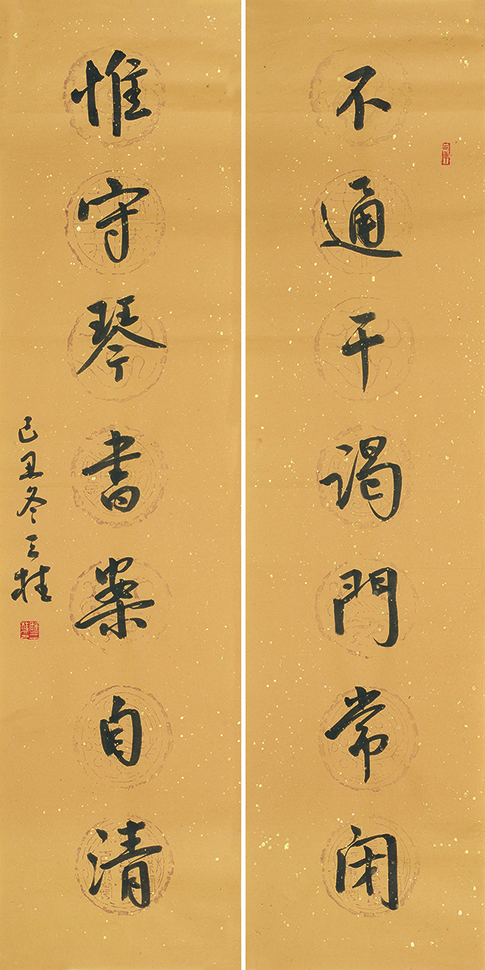 不通干谒門常闭
惟守琴書案自清
己丑冬云桂